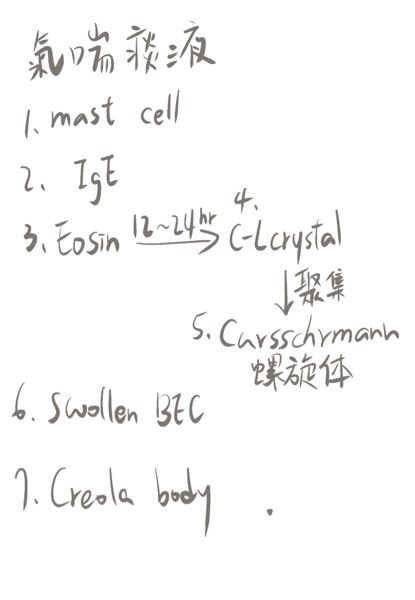 氣喘痰液
1、mast cell
2、IgE
3、Eosin 12~24hr → 4、C-Lcrystal
↓聚集
5、Cursschrmann
螺旋体
6、Swollen BEC
7、Creola body